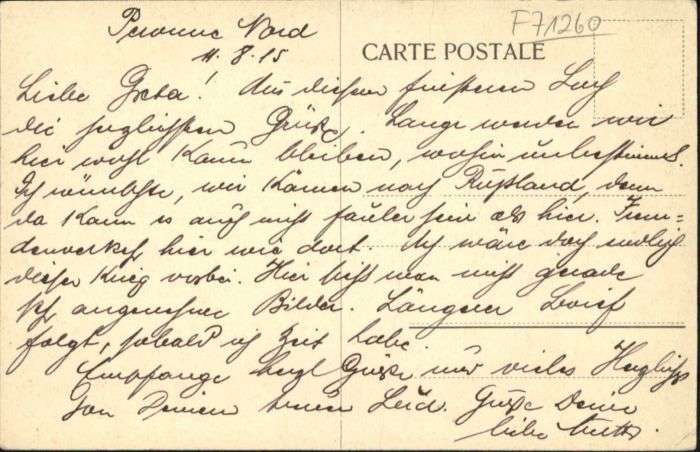 F71260
Peronne Nord
11.8.15
CARTE POSTALE
Liebe Greta! Aus diesem finsteren Loch
die herzlichsten Grüße. Lange werden wir
hier wohl kaum bleiben, wohin unbestimmt.
Ich wünschte, wir kämen nach Rußland, denn
da kann es auch nicht fauler sein als hier.
hier wie dort. Ich wäre doch endlich
dieser Krieg vorbei. Hier sieht man nicht gerade
sehr angenehme Bilder. Längerer Brief
folgt, sobald ich Zeit habe.
Empfange herzl. Grüße und vieles Herzliche
von Deinem treuen Grüße Deine
liebe Mutter